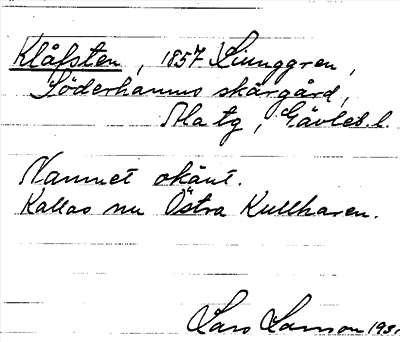 Klåfsten, 1857 Ljunggren,
Söderhamns skärgård,
Ala tg, Gävleb. l.
Namnet okänt.
Kallas nu Östra Kullharen.
Lars Larsson 1931